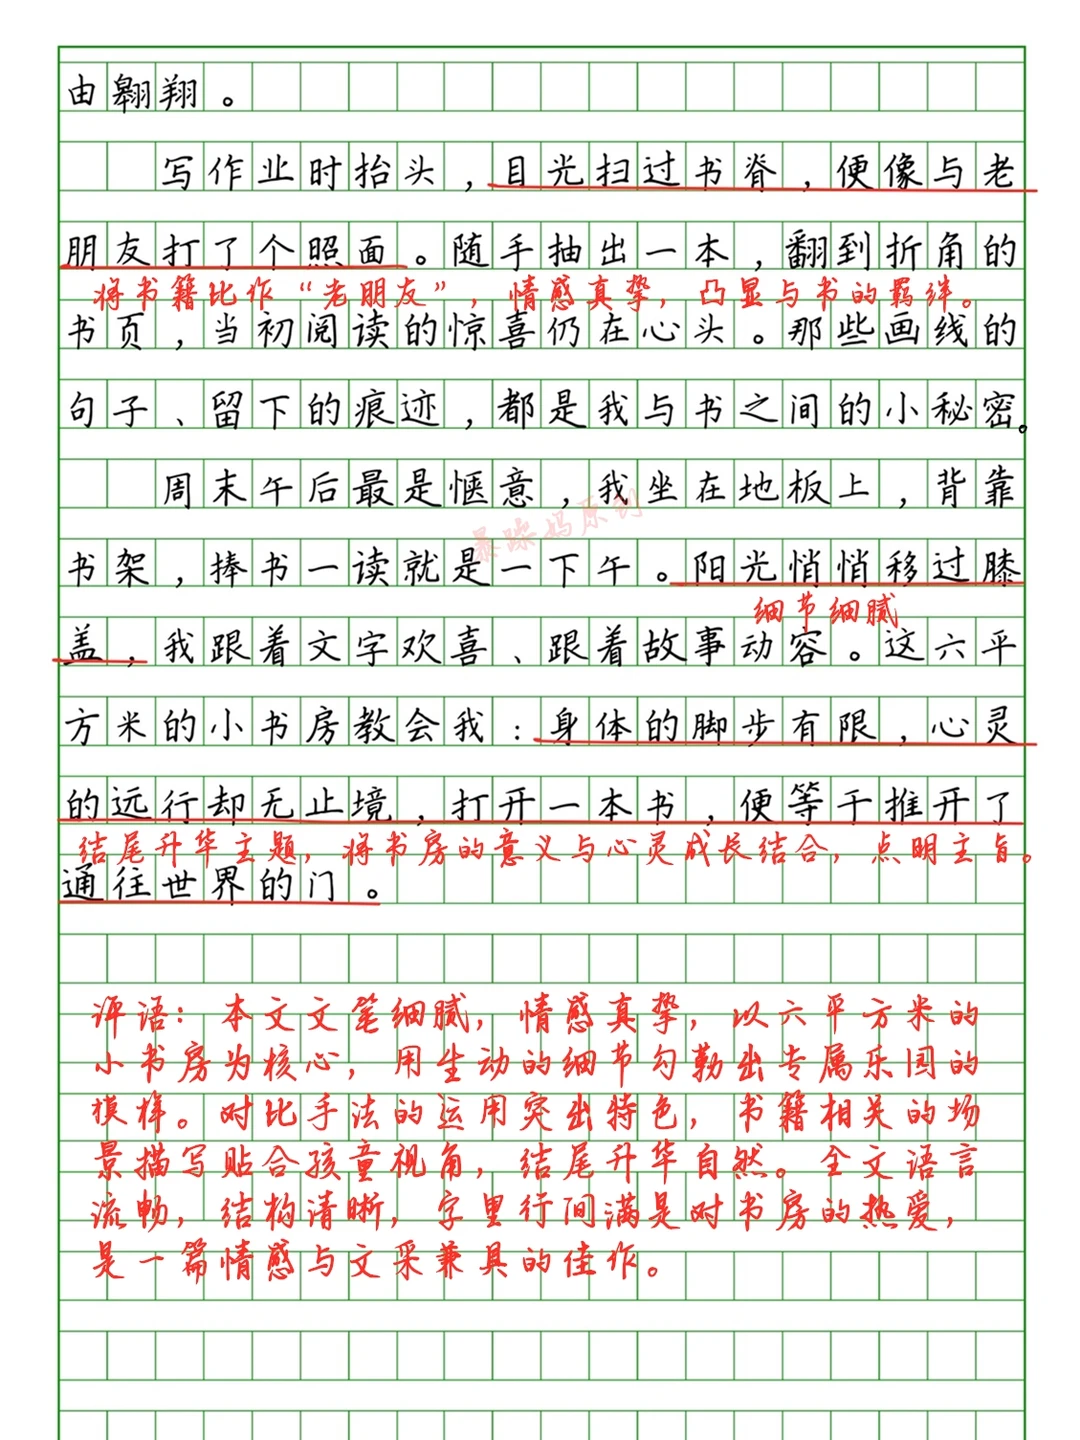 由翱翔。
写作业时抬头，目光扫过书脊，便像与老
朋友打了个照面。随手抽出一本，翻到折角的
将书籍比作“老朋友”，情感真挚，凸显与书的羁绊。
书页，当初阅读的惊喜仍在心头。那些画线的
句子、留下的痕迹，都是我与书之间的小秘密。
周末午后最是惬意，我坐在地板上，背靠
暴躁妈原创
书架，捧书一读就是一下午。阳光悄悄移过膝
细节细腻
盖，我跟着文字欢喜、跟着故事动容。这六平
方米的小书房教会我：身体的脚步有限，心灵
的远行却无止境，打开一本书，便等于推开了
结尾升华主题，将书房的意义与心灵成长结合，点明主旨。
通往世界的门。
评语：本文文笔细腻，情感真挚，以六平方米的
小书房为核心，用生动的细节勾勒出专属乐园的
模样。对比手法的运用突出特色，书籍相关的场
景描写贴合孩童视角，结尾升华自然。全文语言
流畅，结构清晰，字里行间满是对书房的热爱，
是一篇情感与文采兼具的佳作。